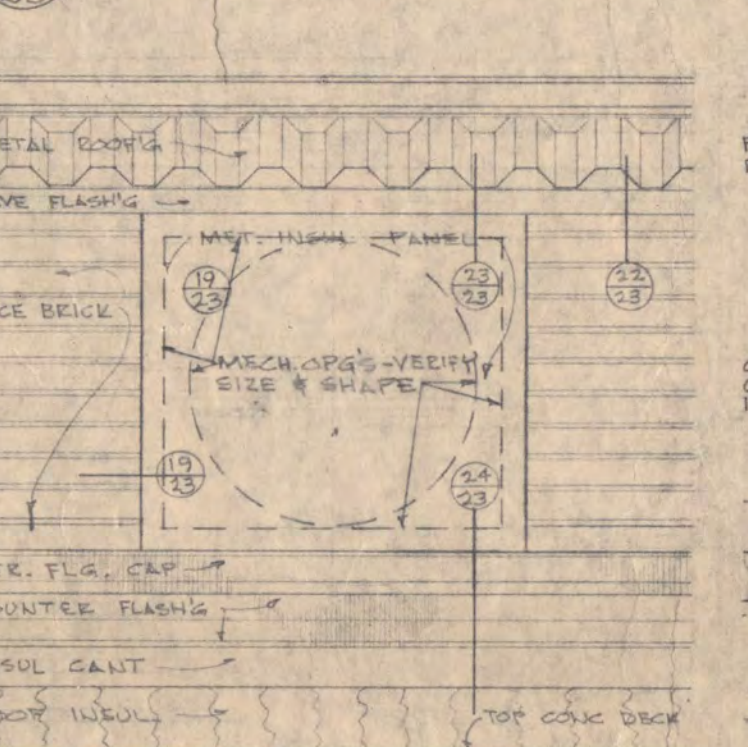 ETAL ROOF'G
VE FLASH'G
MET. INSUL PANEL
19
23
23
23
22
23
CE BRICK
MECH. OPG'S-VERIFY
SIZE & SHAPE
19
23
24
23
R. FLG. CAP
UNTER FLASH'G
SUL CANT
OOF INSUL.
TOP CONC DECK